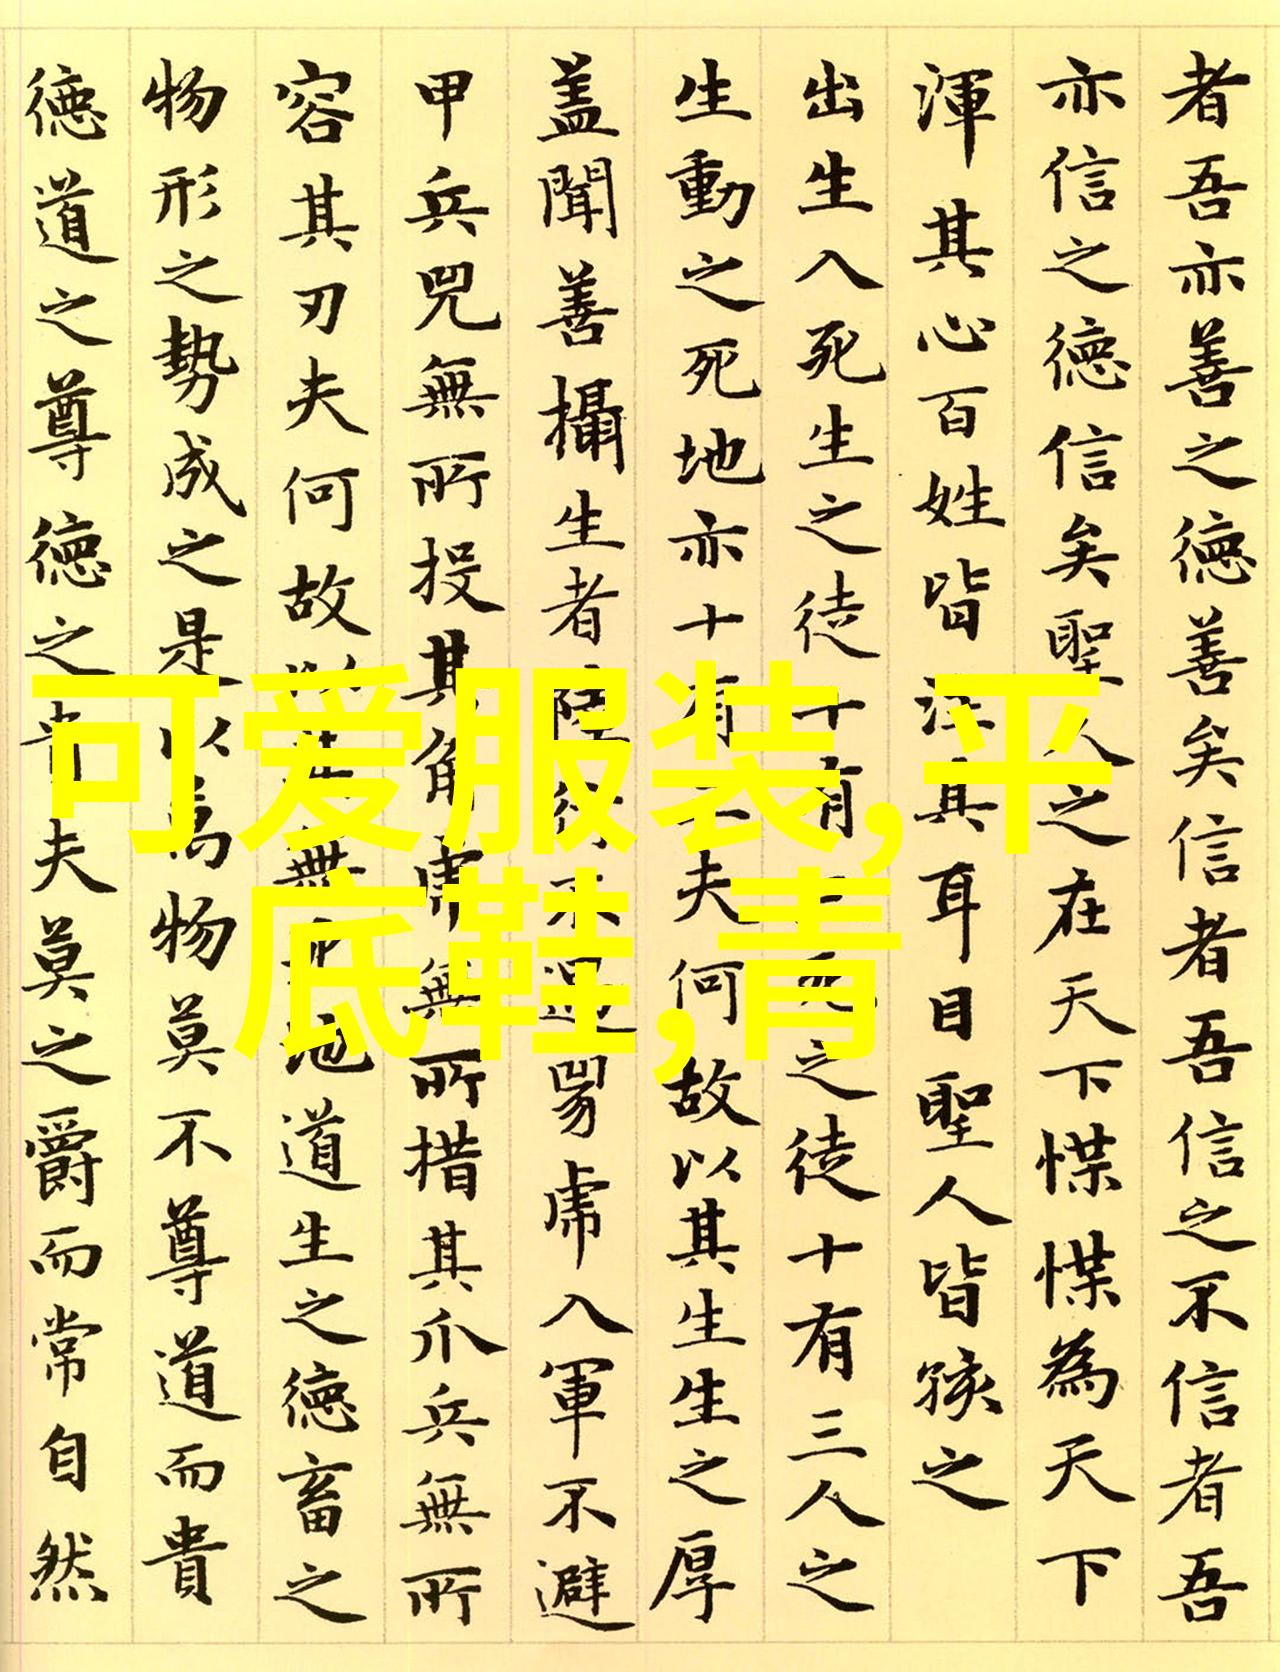 者吾亦善之德善矣信者吾信之不信者吾
亦信之德信矣聖人之在天下惵惵為天下
渾其心百姓皆注其耳目聖人皆孩之
出生入死生之徒十有三死之徒十有三人之
生動之死地亦十有三夫何故以其生生之厚
蓋聞善攝生者陸行不遇兕虎入軍不避
甲兵兕無所投其角虎無所措其爪兵無所
容其刃夫何故以其無死地道生之德畜之
物形之勢成之是以萬物莫不尊道而貴
德道之尊德之貴夫莫之爵而常自然
可爱服装,平
底鞋,青